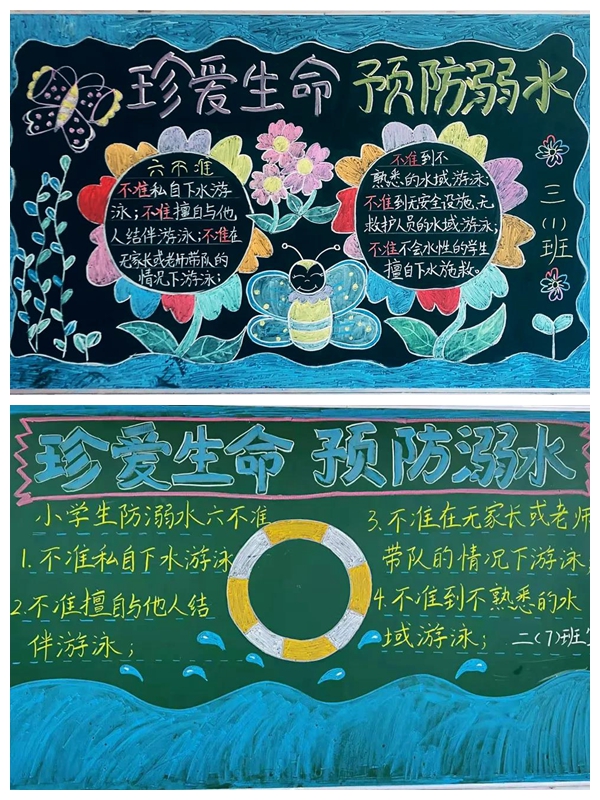 珍爱生命 预防溺水
六不准
不准私自下水游
泳；不准擅自与他
人结伴游泳；不准在
无家长或老师带队的
情况下游泳；
不准到不
熟悉的水域游泳；
不准到无安全设施、无
救护人员的水域游泳；
不准不会水性的学生
擅自下水施救。
三(1)班
珍爱生命 预防溺水
小学生防溺水六不准
1.不准私自下水游泳
2.不准擅自与他人结
伴游泳；
3.不准在无家长或老师
带队的情况下游泳；
4.不准到不熟悉的水
域游泳；
二(7)班